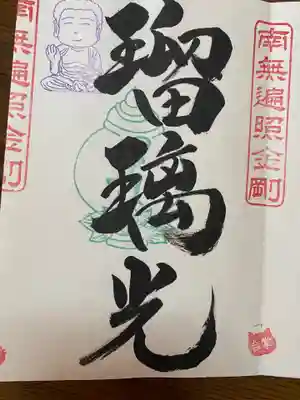 南無遍照金剛
瑠璃光
南無遍照金剛
合掌